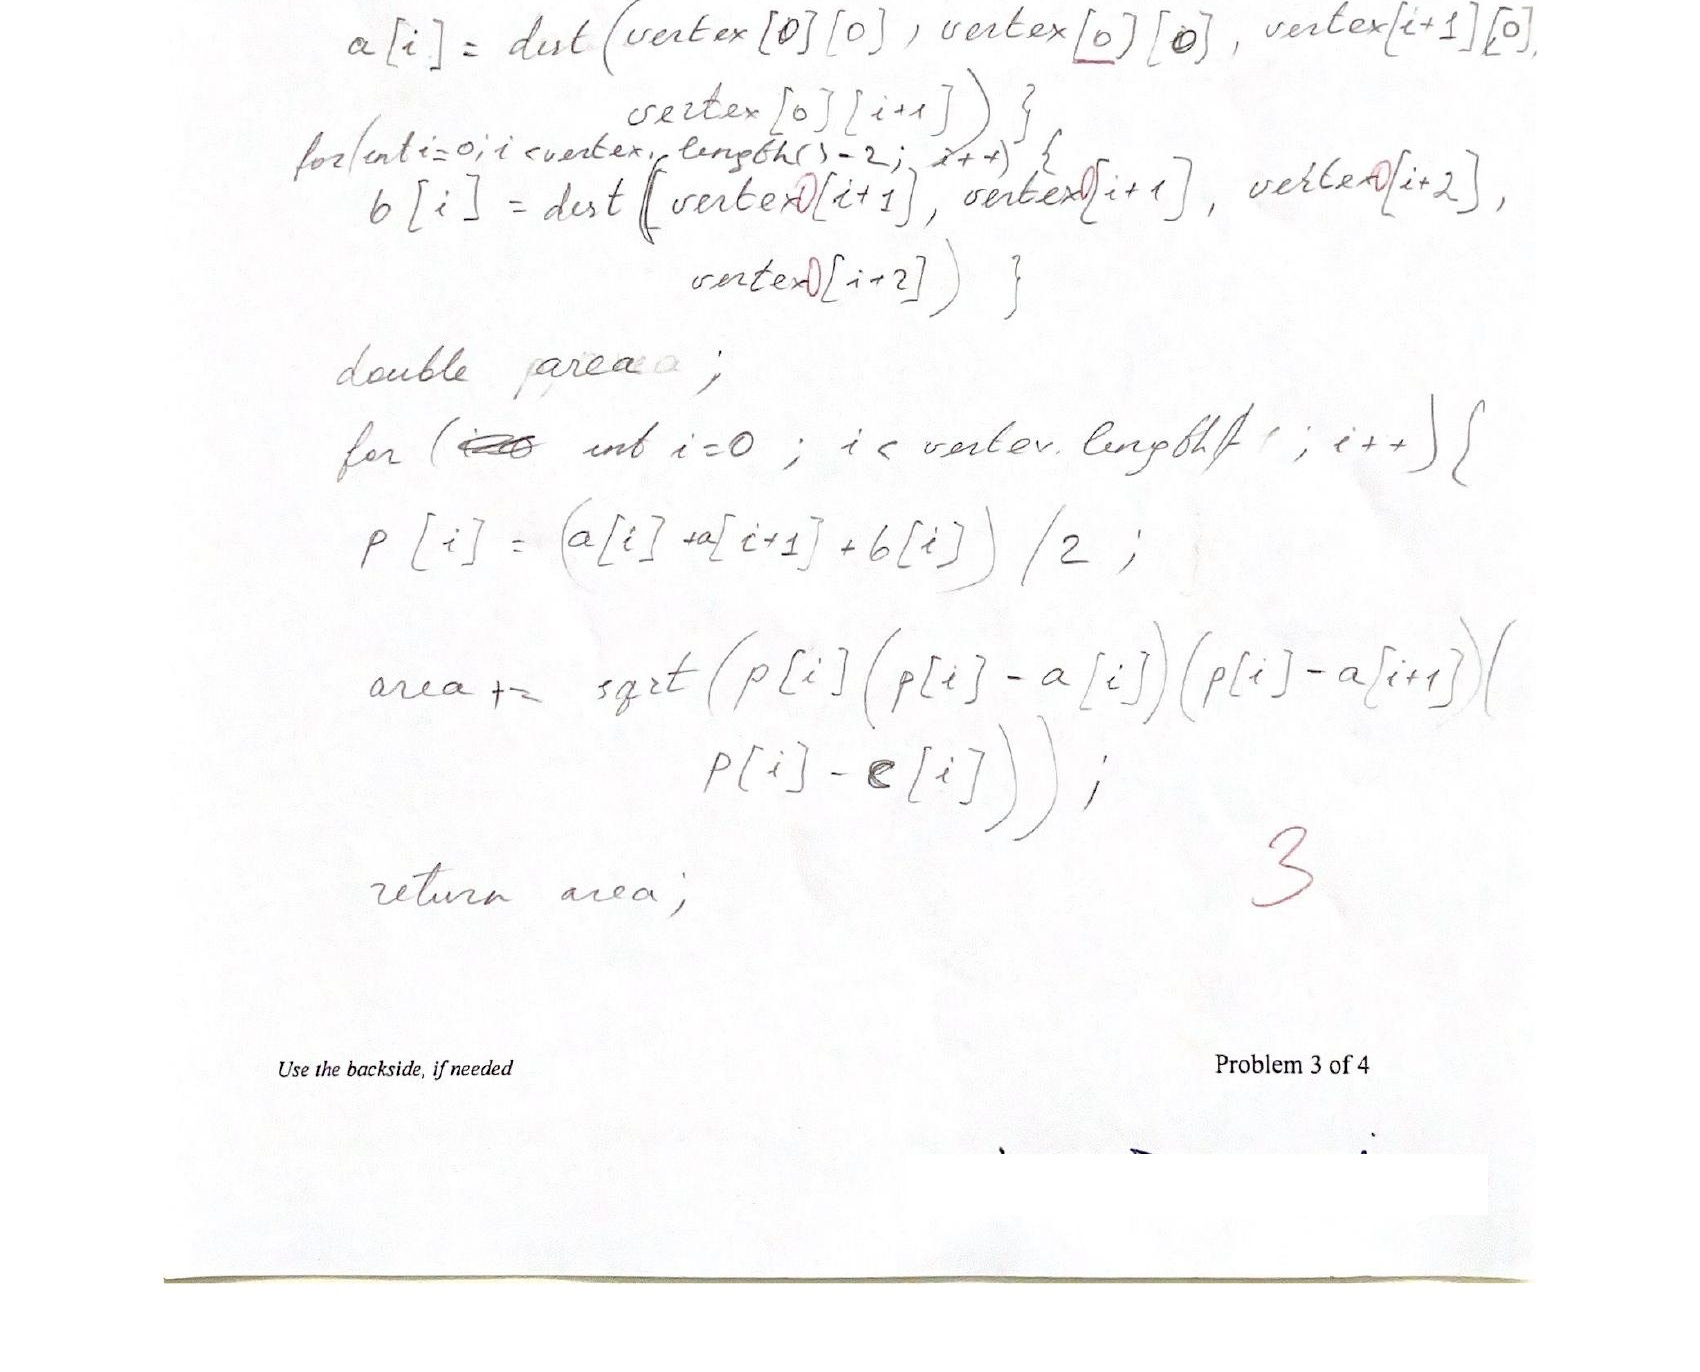 a[i] = dist(vertex[0][0], vertex[0][0], vertex[i+1][0],
vertex[0][i+1]) }
for(int i=0; i<vertex.length()-2; i++) {
b[i] = dist(vertex[][i+1], vertex[][i+1], vertex[][i+2],
vertex[][i+2]) }
double area;
for ( int i=0 ; i < vertex.length ; i++) {
p[i] = (a[i] +a[i+1] +b[i]) /2 ;
area += sqrt(p[i](p[i]-a[i])(p[i]-a[i+1])(
p[i]-c[i])) ;
3
return area;
Use the backside, if needed
Problem 3 of 4